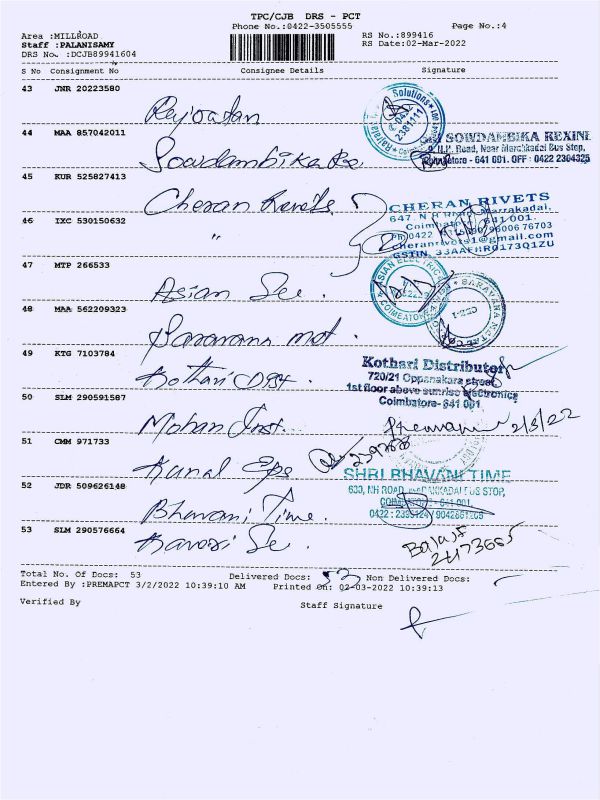 TPC/CJB DRS - PCT
Phone No.:0422-3505555 Page No.:4
Area :MILLROAD RS No.:899416
Staff :PALANISAMY RS Date:02-Mar-2022
DRS No. :DCJB89941604
S No Consignment No Consignee Details Signature
43 JNR 20223580
Solutions
0422
2381111
44 MAA 857042011
Sowdambika Re
SRI SOWDAMBIKA REXINE
N.H. Road, Near Marakkadai Bus Stop,
Coimbatore - 641 001. OFF : 0422 2304325
45 KUR 525827413
Cheran Rivets
CHERAN RIVETS
647, N H Road, Marrakadai,
Coimbatore 641 001.
96006 76703
cheranrivets1@gmail.com
GSTIN. 33AAFHR0173Q1ZU
46 IXC 530150632
"
47 MTP 266533
Asian Ele.
ASIAN ELECTRIC
COIMBATORE
48 MAA 562209323
Saravana mot.
SARAVANA
49 KTG 7103784
Kothari Dist.
Kothari Distributor
720/21 Oppanakara street,
1st floor above sunrise electronics
Coimbatore- 641 001
50 SLM 290591587
Mohan Inst.
2/3/22
51 CMM 971733
52 JDR 509626148
Bhavani Time.
SHRI BHAVANI TIME
630, NH ROAD, MARAKKADAI BUS STOP,
COIMBATORE - 641 001.
53 SLM 290576664
Balaji
Total No. Of Docs: 53 Delivered Docs: 53 Non Delivered Docs:
Entered By :PREMAPCT 3/2/2022 10:39:10 AM Printed On: 02-03-2022 10:39:13
Verified By Staff Signature